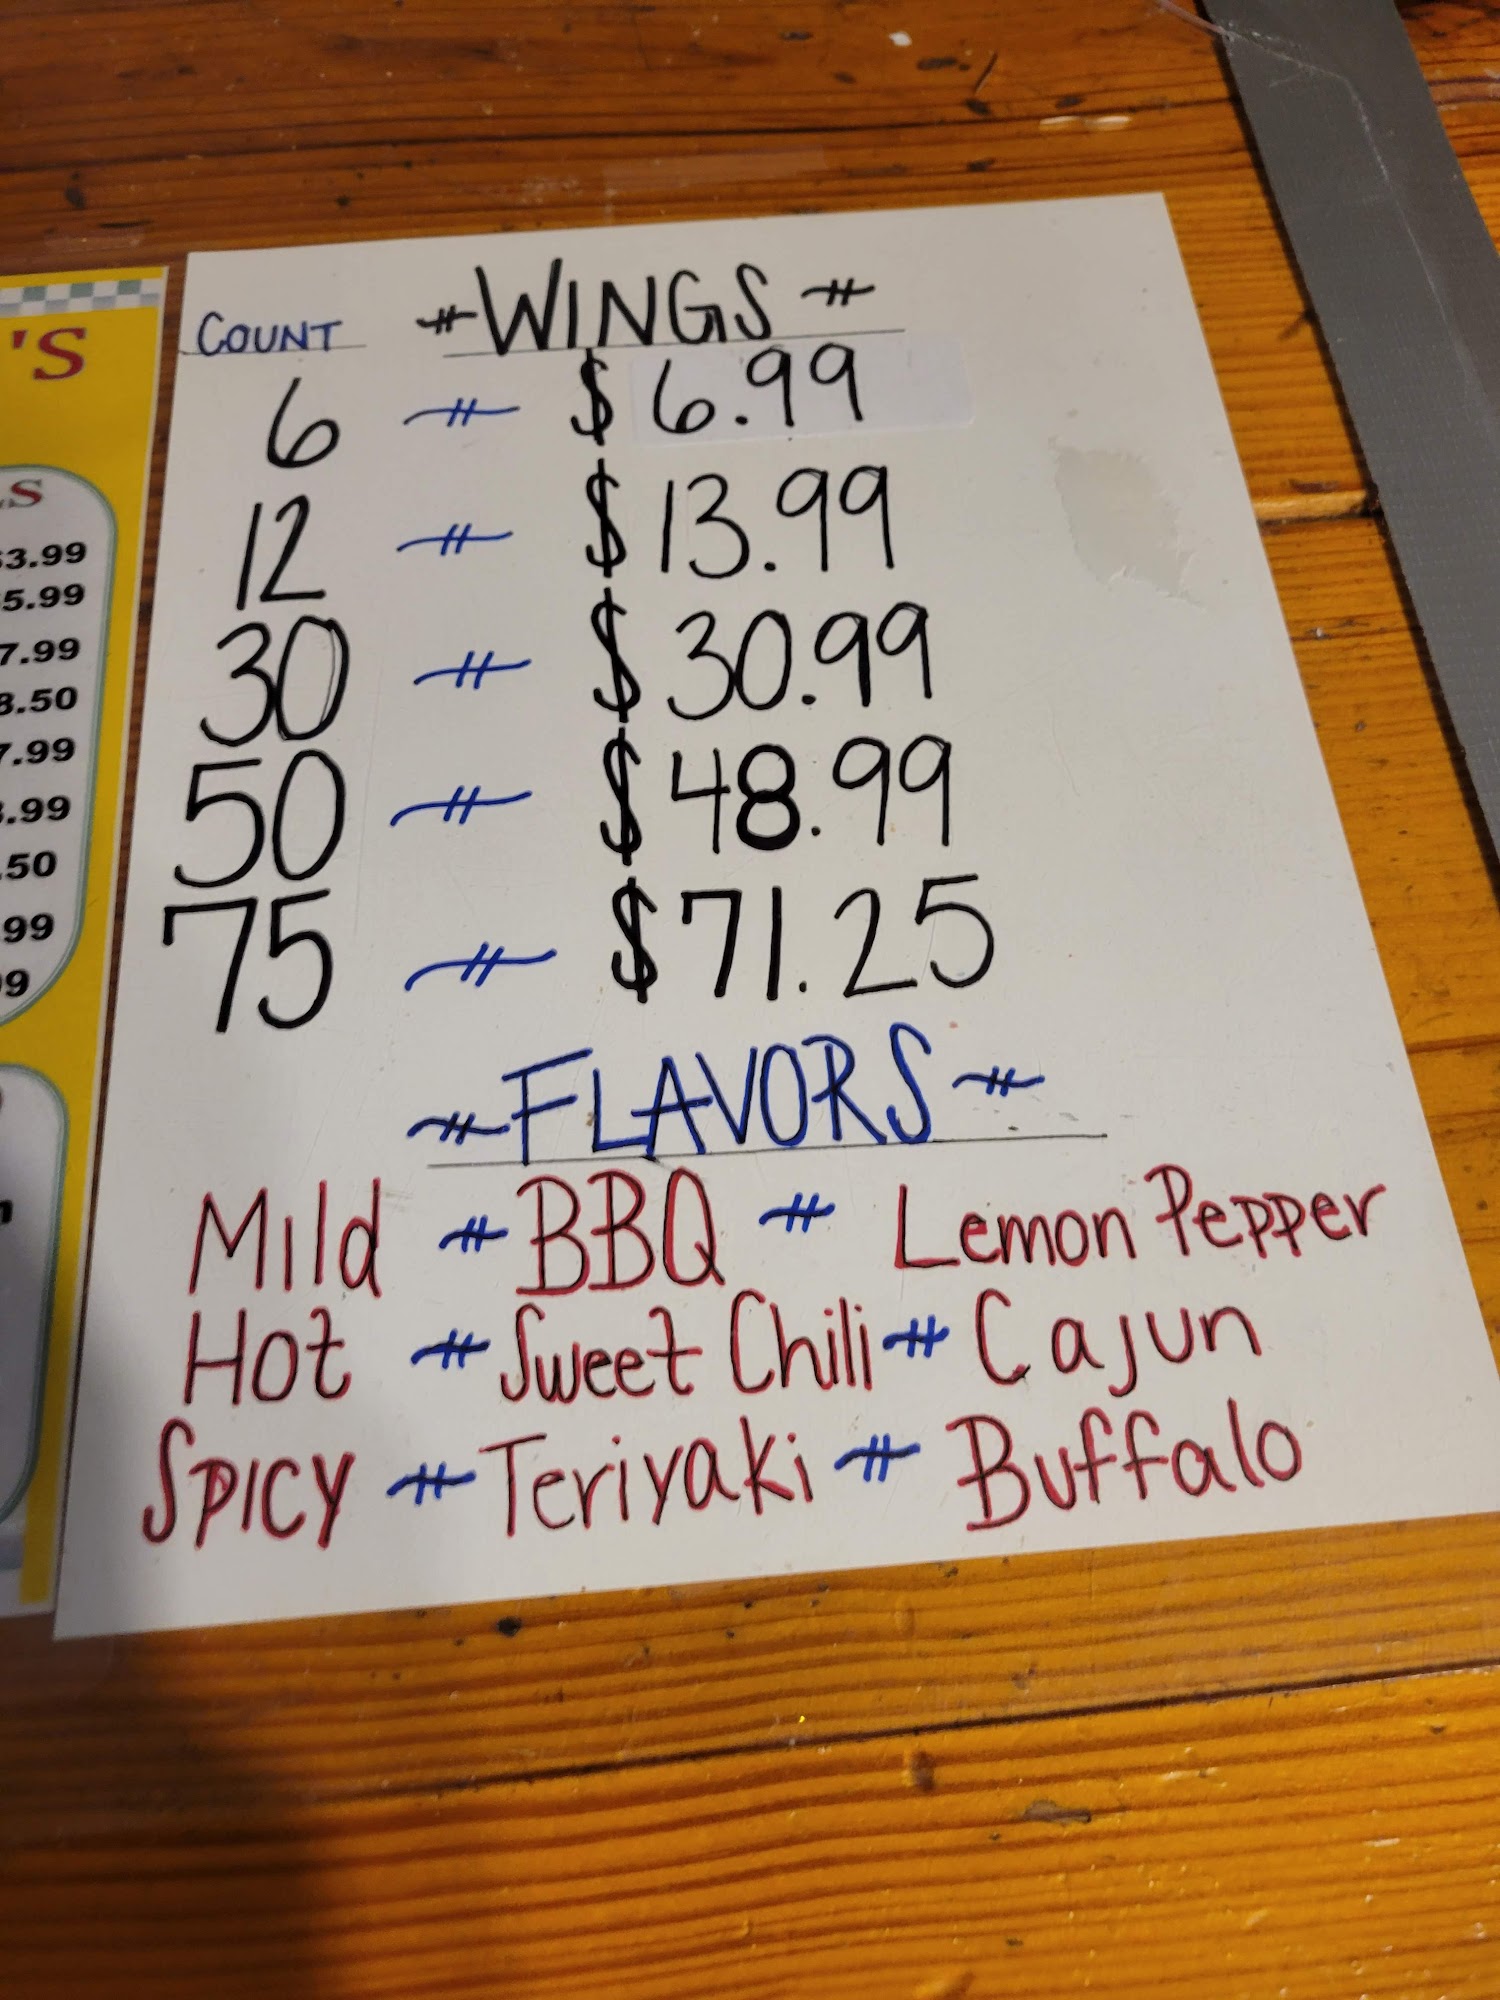 'S
LS
3.99
5.99
7.99
8.50
7.99
.99
.50
99
9
COUNT WINGS
6 $6.99
12 $13.99
30 $30.99
50 $48.99
75 $71.25
FLAVORS
Mild BBQ Lemon Pepper
Hot Sweet Chili Cajun
SPICY Teriyaki Buffalo